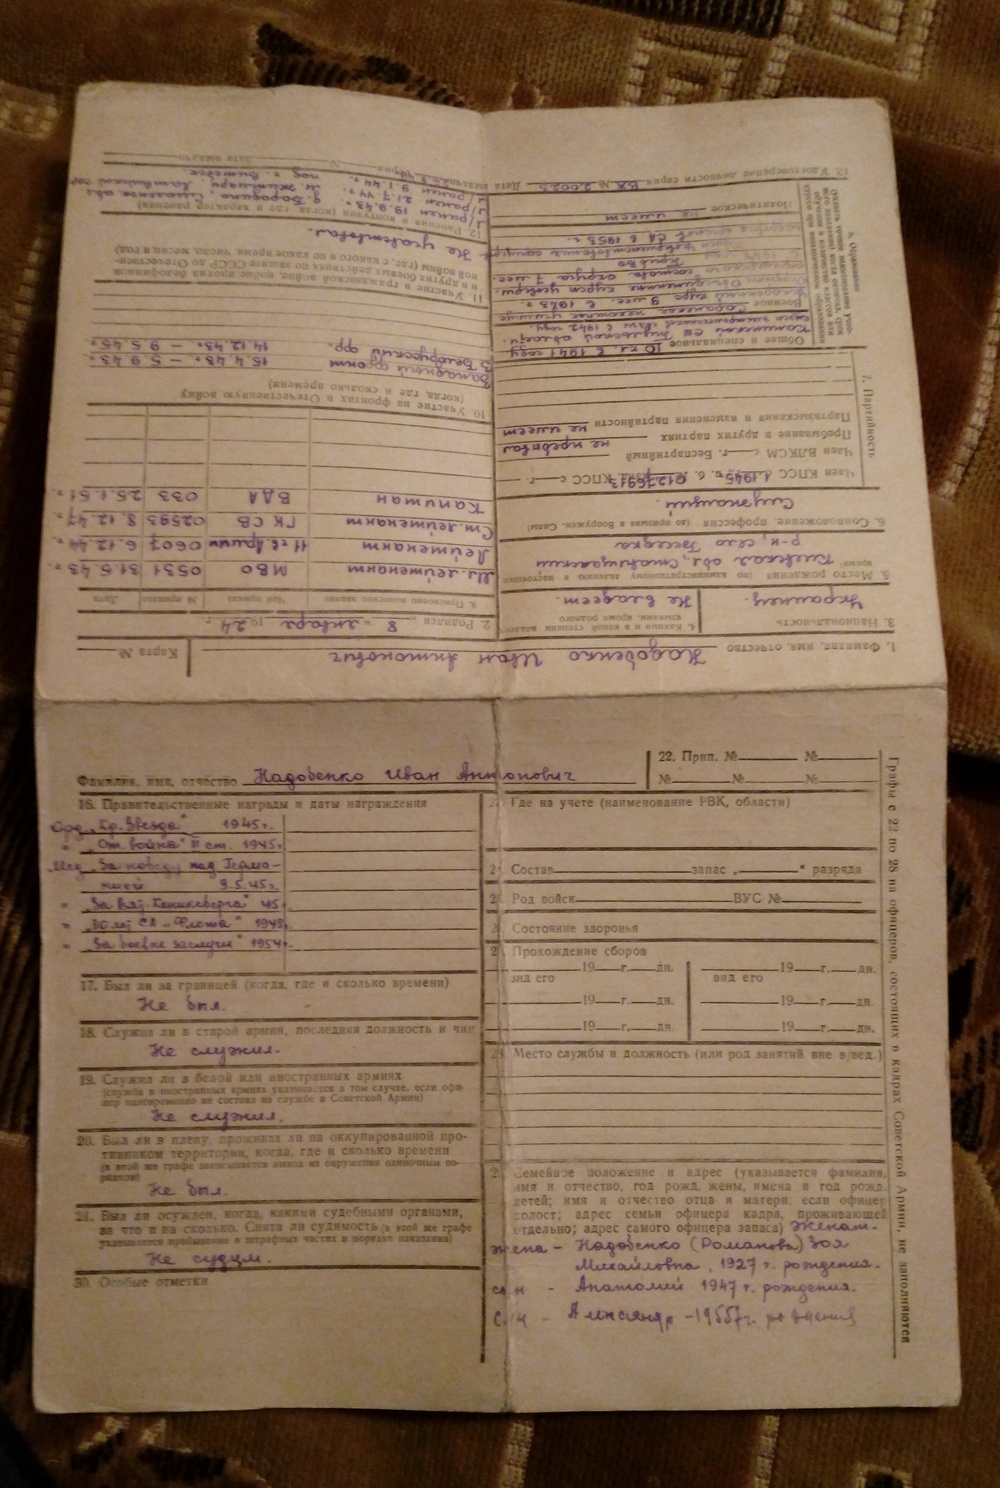 Фамилия, имя, отчество Надобенко Иван Антонович
22. Прип. № №
№ № №
16. Правительственные награды и даты награждения
Орд. „Кр. Звезда" 1945г.
" „От. война" II ст. 1945г.
Мед. „За победу над Герма-
нией 9.5.45г.
" „За взят. Кенигсберга" 45г.
" „30 лет СА-Флота" 1948г.
" „За боевые заслуги" 1954г.
17. Был ли за границей (когда, где и сколько времени)
Не был.
18. Служил ли в старой армии, последняя должность и чин
Не служил.
19. Служил ли в белой или иностранных армиях
(служба в иностранных армиях указывается в том случае, если офи-
цер одновременно не состоял на службе в Советской Армии)
Не служил.
20. Был ли в плену, проживал ли на оккупированной про-
тивником территории, когда, где и сколько времени
(в этой же графе записывается выход из окружения одиночным по-
рядком)
Не был.
21. Был ли осужден, когда, какими судебными органами,
за что и на сколько. Снята ли судимость (в этой же графе
указывается пребывание в штрафных частях в порядке наказания)
Не судим.
30. Особые отметки
Где на учете (наименование РВК, области)
Состав запас „ " разряда
Род войск ВУС №
Состояние здоровья
Прохождение сборов
19 г. дн. 19 г. дн.
вид его вид его
19 г. дн. 19 г. дн.
19 г. дн. 19 г. дн.
Место службы и должность (или род занятий вне в/вед.)
Семейное положение и адрес (указывается фамилия,
имя и отчество, год рожд. жены, имена и год рожд.
детей; имя и отчество отца и матери, если офицер
холост; адрес семьи офицера кадра, проживающей
отдельно; адрес самого офицера запаса) Женат.
жена - Надобенко (Романова) Зоя
Михайловна, 1927 г. рождения.
сын - Анатолий 1947 г. рождения.
сын - Александр - 1955г. рождения
Графы с 22 по 28 на офицеров, состоящих в кадрах Советской Армии, не заполняются
1. Фамилия, имя, отчество Надобенко Иван Антонович
Карта №
3. Национальность Украинец.
4. Какими и в какой степени владеет
языками, кроме родного Не владеет.
5. Место рождения (по административному делению в настоящее
время) Киевская обл., Ставищанский
р-н, село Беседка
6. Соцположение, профессия (до призыва в Вооружен. Силы)
Служащий.
7. Партийность
Член КПСС с 1945 г. п. б. № 01276913
Член ВЛКСМ с г. Беспартийный
Пребывание в других партиях не пребывал
Партвзыскания и изменения партийности не имеет
8. Образование
Общее и специальное 10 кл. в 1941 году
Военное
Политическое не имеет
2. Родился „ 8 " января 1924 г.
9. Присвоено воинское звание Чей приказ № приказа Дата
Мл. лейтенант МВО 0531 31.5.43г.
Лейтенант 11 гв. Армии 0607 6.12.44г.
Ст. лейтенант ГК СВ 02593 8.12.47г.
Капитан ВДА 033 25.1.51г.
10. Участие на фронтах в Отечественную войну
(когда, где и сколько времени)
Западный фронт 15.4.43г. - 5.9.43г.
3 Белорусский фр. 14.12.43г. - 9.5.45г.
11. Участие в гражданской войне, войне против белофиннов
и в других боевых действиях по защите СССР до Отечествен-
ной войны (где, с какого и по какое время, число, месяц и год)
Не участвовал.
12. Ранения и контузии (когда, где и характер ранения)
13. Удостоверение личности серия ВЖ №